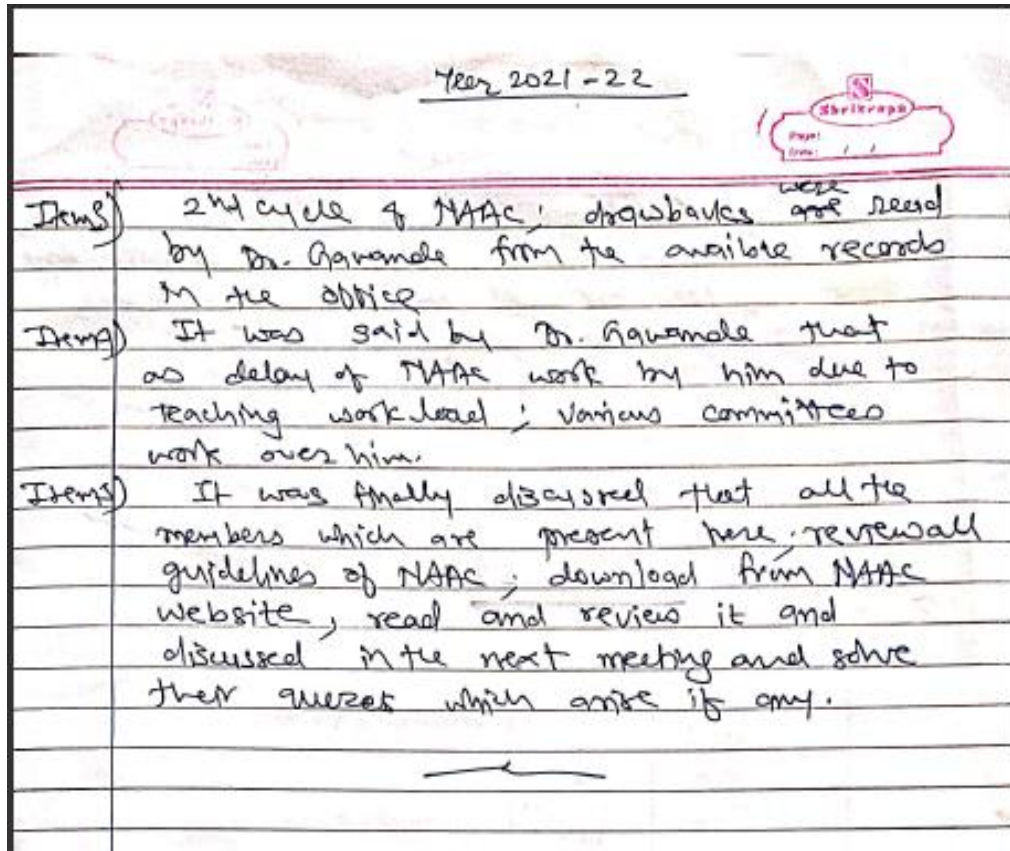 Year 2021-22
Shrikrupa
Page:
Date: / /
Item3) 2nd cycle of NAAC; drawbacks were are read
by Dr. Gawande from the avaible records
in the office
Item4) It was said by Dr. Gawande that
as delay of NAAC work by him due to
teaching work load; various committees
work over him.
Item5) It was finally discussed that all the
members which are present here; review all
guidelines of NAAC; download from NAAC
website, read and review it and
discussed in the next meeting and solve
their quezes which arise if any.